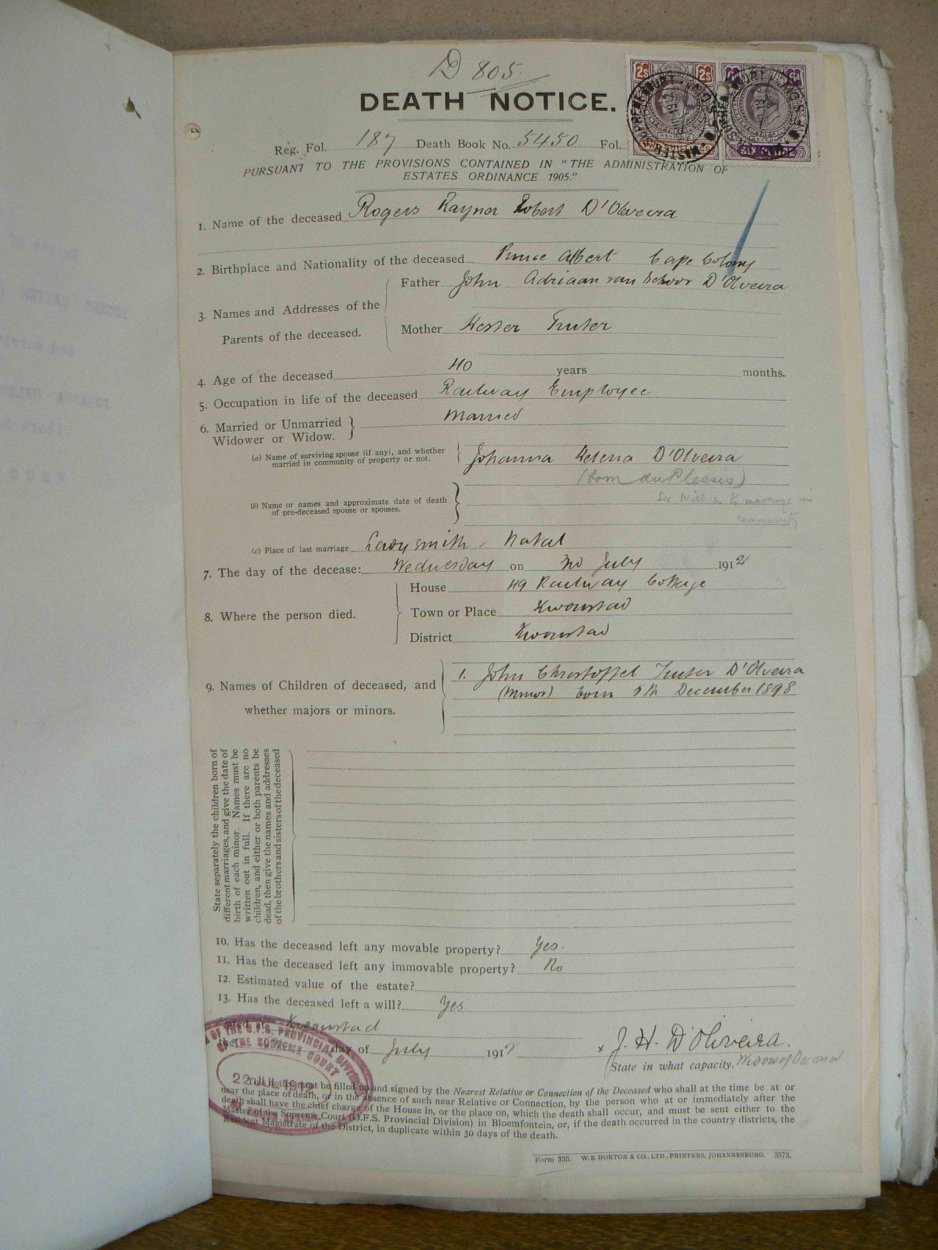 D 805.
DEATH NOTICE.
Reg. Fol. 187 Death Book No. 5450 Fol.
PURSUANT TO THE PROVISIONS CONTAINED IN "THE ADMINISTRATION OF
ESTATES ORDINANCE 1905."
2S 2S
SIX PENCE
1. Name of the deceased Rogers Rayner Robert D'Oliveira
2. Birthplace and Nationality of the deceased Prince Albert Cape Colony
3. Names and Addresses of the Parents of the deceased.
Father John Adriaan van Schoor D'Oliveira
Mother Hester Truter
4. Age of the deceased 40 years months.
5. Occupation in life of the deceased Railway Employee
6. Married or Unmarried
Widower or Widow.
Married
(a) Name of surviving spouse (if any), and whether
married in community of property or not.
Johanna Helena D'Oliveira
(born du Plessis)
See Will as to marriage in
community
(b) Name or names and approximate date of death
of pre-deceased spouse or spouses.
(c) Place of last marriage Ladysmith - Natal
7. The day of the decease: Wednesday on 3rd July 1912
8. Where the person died.
House 49 Railway Cottage
Town or Place Kroonstad
District Kroonstad
9. Names of Children of deceased, and
whether majors or minors.
1. John Christoffel Truter D'Oliveira
(Minor) born December 1898
State separately the children born of
different marriages, and give the date of
birth of each minor. Names must be
written out in full. If there are no
children, and either or both parents be
dead, then give the names and addresses
of the brothers and sisters of the deceased
10. Has the deceased left any movable property? Yes.
11. Has the deceased left any immovable property? No
12. Estimated value of the estate?
13. Has the deceased left a will? Yes
Dated at Kroonstad
day of July 1912
x J. H. D'Oliveira.
State in what capacity. Widow of Deceased
OF THE O.F.S. PROVINCIAL DIVISION
OF THE SUPREME COURT
22 JUL 1912
must be filled up and signed by the Nearest Relative or Connection of the Deceased who shall at the time be at or
near the place of death, or in the absence of such near Relative or Connection, by the person who at or immediately after the
death shall have the chief charge of the House in, or the place on, which the death shall occur, and must be sent either to the
Master of the Supreme Court (O.F.S. Provincial Division) in Bloemfontein, or, if the death occurred in the country districts, the
Resident Magistrate of the District, in duplicate within 30 days of the death.
Form 335. W. E. HORTOR & CO., LTD., PRINTERS, JOHANNESBURG. 3573.